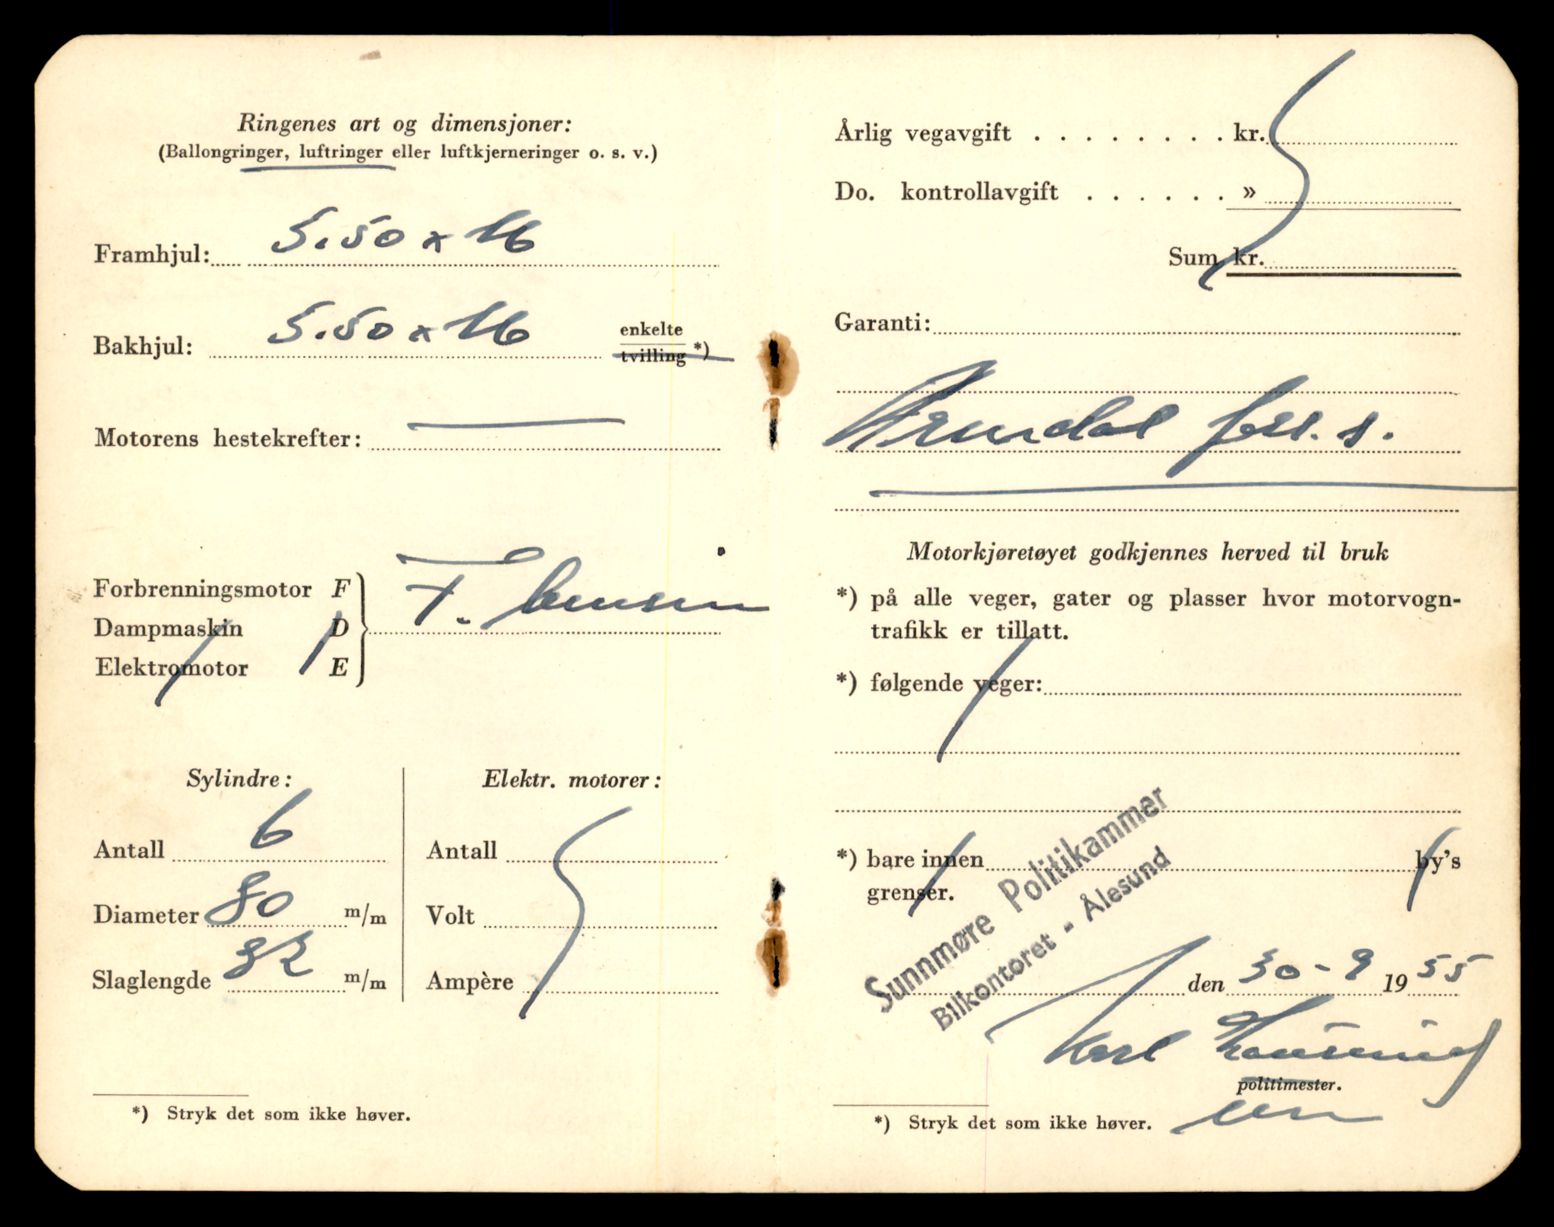 Ringenes art og dimensjoner:
(Ballongringer, luftringer eller luftkjerneringer o. s. v.)
Framhjul: 5.50 x 16
Bakhjul: 5.50 x 16 enkelte
tvilling *)
Motorens hestekrefter: —
Forbrenningsmotor F
Dampmaskin D
Elektromotor E
F. bensin
Sylindre:
Antall 6
Diameter 80 m/m
Slaglengde 82 m/m
Elektr. motorer:
Antall
Volt
Ampère
*) Stryk det som ikke høver.
Årlig vegavgift . . . . . . . . kr.
Do. kontrollavgift . . . . . . »
Sum kr.
Garanti:
Arendal fors. s.
Motorkjøretøyet godkjennes herved til bruk
*) på alle veger, gater og plasser hvor motorvogn-
trafikk er tillatt.
*) følgende veger:
*) bare innen by's
grenser.
Sunnmøre Politikammer
Bilkontoret - Ålesund
den 30-9 1955
Karl
politimester.
*) Stryk det som ikke høver.